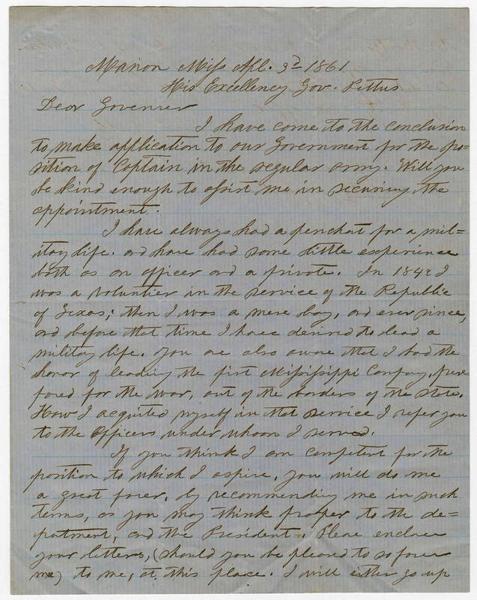 Marion Miss Apl. 3d 1861
His Excellency Gov. Pettus
Dear Governer
I have come to the conclusion
to make application to our Government for the po-
sition of Captain in the regular army. Will you
be kind enough to assist me in securing the
appointment.
I have always had a penchat for a mili-
tary life. and have had some little experience
both as an officer and a private. In 1842 I
was a volunteer in the service of the Republic
of Texas; then I was a mere boy, and ever since,
and before that time I have desired to lead a
military life. You are also aware that I had the
honor of leading the first Mississippi Company,
fered for the war, out of the borders of the state.
How I acquited myself in that service I refer you
to the Officers under whom I served.
If you think I am competent for the
position to which I aspire, you will do me
a great favor, by recommending me in such
terms, as you may think propper to the de-
partment, and the President. Please enclose
your letters, (should you be pleased to so favor
me) to me, at this place. I will either go up